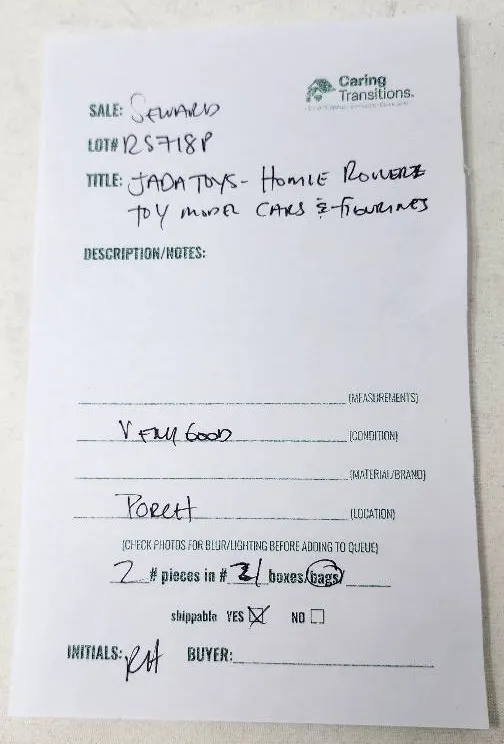 Caring
Transitions.
SALE: SEWARD
LOT# RS718P
TITLE: JADA TOYS - HOMIE ROLLERZ
TOY MODEL CARS & FIGURINES
DESCRIPTION/NOTES:
(MEASUREMENTS)
VERY GOOD (CONDITION)
(MATERIAL/BRAND)
PORCH (LOCATION)
(CHECK PHOTOS FOR BLUR/LIGHTING BEFORE ADDING TO QUEUE)
2 # pieces in # 1 boxes/bags
shippable YES NO
INITIALS: RH BUYER: